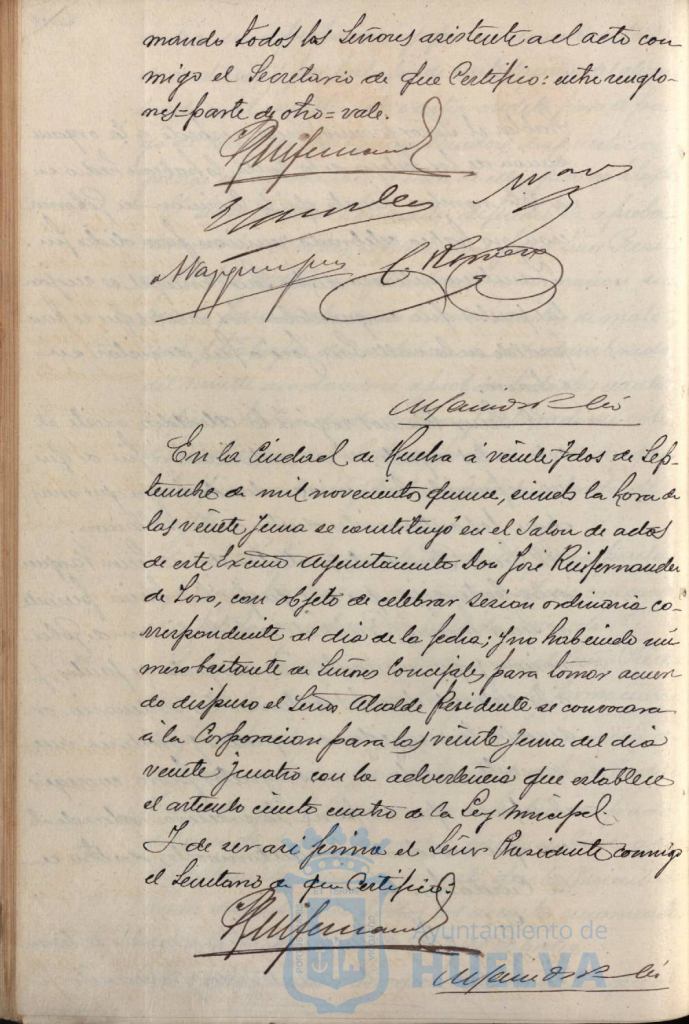 mando todos los Señores asistente a el acto con
migo el Secretario de que Certifico: entre renglo-
nes=parte de otro=vale.
C Romero
En la Ciudad de Huelva á veinte y dos de Sep-
tiembre de mil novecientos quince, siendo la hora de
las veinte y una se constituyó en el Salon de actos
de este Excmo Ayuntamiento Don José Ruifernandez
de Toro, con objeto de celebrar sesion ordinaria co-
rrespondiente al dia de la fecha; y no habiendo nú
mero bastante de Señores Concejales para tomar acuer
do dispuso el Señor Alcalde Presidente se convocara
á la Corporacion para las veinte y una del dia
veinte y cuatro con la advertencia que establece
el articulo ciento cuatro de la Ley Municipal.
Y de ser asi firma el Señor Presidente conmigo
el Secretario de que Certifico:
Ayuntamiento de
HUELVA